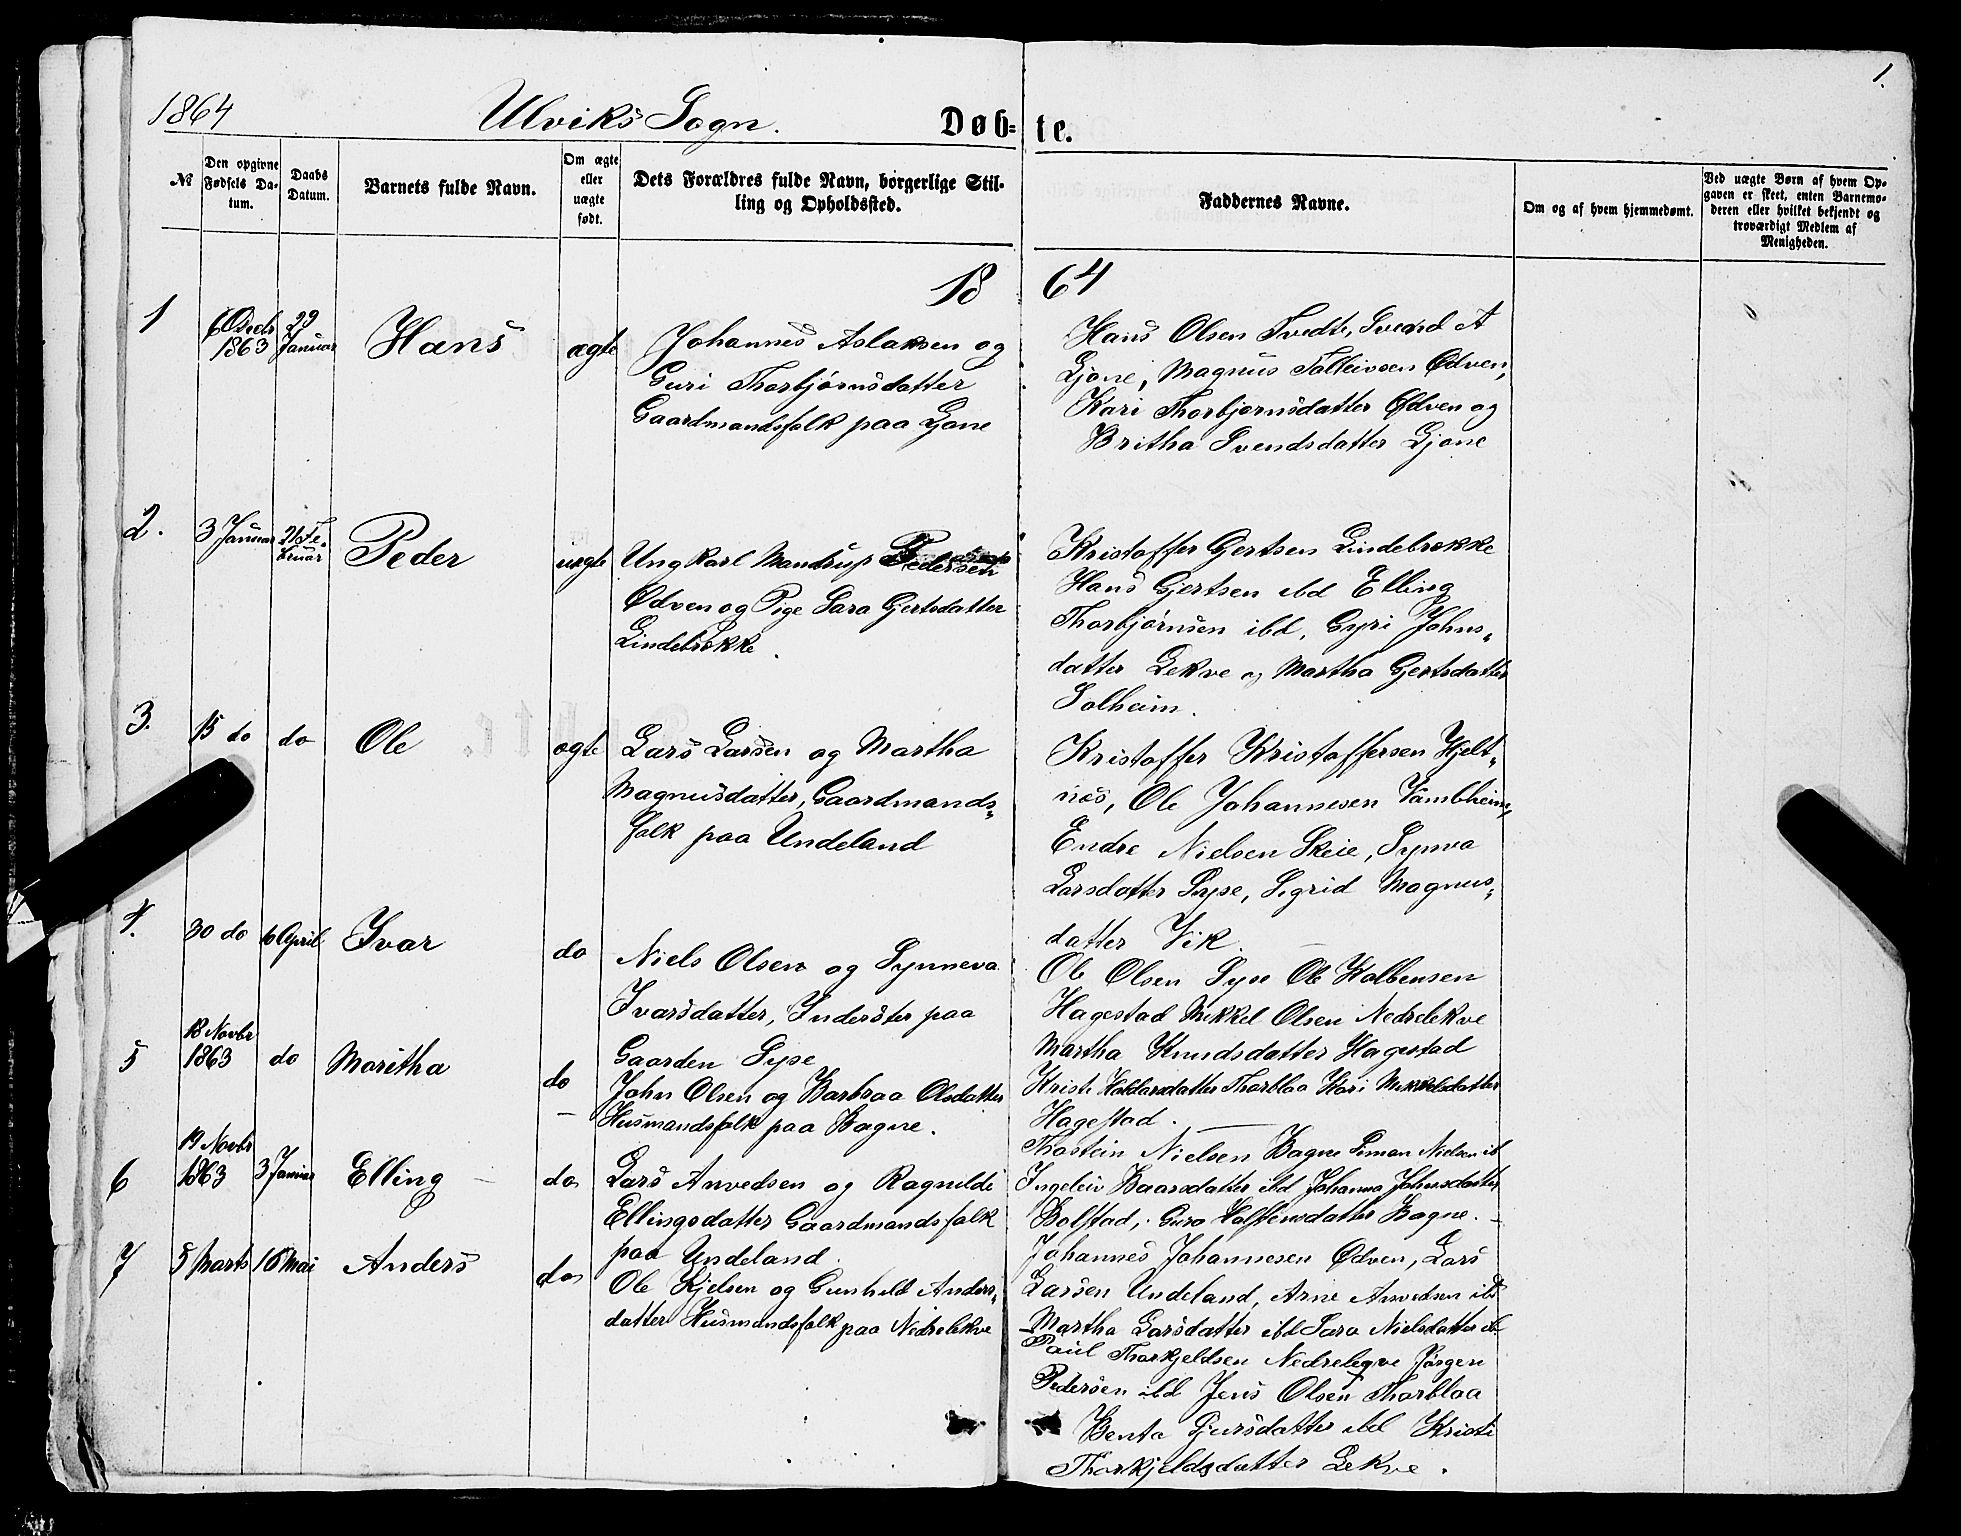 1.
1864 Ulviks Sogn. Døb= te.
№
Den opgivne Fødsels Da-tum.
Daabs Datum.
Barnets fulde Navn.
Om ægte eller uægte født.
Dets Forældres fulde Navn, borgerlige Stil-
ling og Opholdssted.
Faddernes Navne.
Om og af hvem hjemmedømt.
Ved uægte Børn af hvem Op-
gaven er skeet, enten Barnemo-
deren eller hvilket bekjendt og
troværdigt Medlem af
Menigheden.
18 64
1
6 Decbr 1863
29 Januar
Hans
ægte
Johannes Aslaksen og
Guri Thorbjørnsdatter
Gaardmandsfolk paa Ljone
Hans Olsen Tvedte, Svend A
Ljone, Magnus Tolleivsen Ødven,
Kari Thorbjornsdatter Ødven og
Britha Svendsdatter Ljone
2.
3 Januar
21 Fe.
bruar
Peder
uægte
Ungkarl Mandrup Pedersen
Ødven og Pige Sara Gjertsdatter
Lindebrekke.
Kristoffer Gertsen Lindebrekke
Hans Gjertsen ibd Elling
Thorbjørnsen ibd, Gyri Johns„
datter Lekve og Martha Gjertsdatter
Solheim.
3.
15 do
do
Ole
ægte
Lars Larsen og Martha
Magnusdatter, Gaardmands„
folk paa Undeland
Kristoffer Kristoffersen Hjelt„
næs, Ole Johannesen Vambheim,
Endre Nielsen Skeie, Synva
Larsdatter Syse, Sigrid Magnus„
datter Vik.
4.
30 do
10 April
Ivar
do
Niels Olsen og Synneva
Ivarsdatter, Inderster paa
Gaarden Syse
Ole Olsen Syse Ole Kolbensen
Hagestad Mikkel Olsen Nedrelekve
Martha Knudsdatter Hagestad
Kristi Haldorsdatter Thorblaa Kari Mikkelsdatter
Hagestad.
5
18 Novbr
1863
do
Maritha
do
John Olsen og Barbraa Olsdatter
Husmandsfolk paa Bagne.
Thostein Nielsen Bagne Simon Nielsen ib
Ingeleiv Baarsdatter ibd Johanna Johnsdatter
Bolstad, Guro Kolbensdatter Bagne.
6
19 Novbr
1863
3 Januar
Elling
do
Lars Anvedsen og Ragnilde
Ellingsdatter Gaardmandsfolk
paa Undeland.
Johannes Johannesen Ødven, Lars
Larsen Undeland, Arne Anvedsen ibd
Martha Larsdatter ibd Sara Nielsdatter ib
7
5 Marts
16 Mai
Anders
do
Ole Kjelsen og Gunhild Anders„
datter Husmandsfolk paa Nedrelekve
Paul Thorkjeldsen Nedreleqve Jørgen
Pedersen ibd Jens Olsen Thorblaa
Benta Sjursdatter ibd Kristi
Thorkjeldsdatter Lekve.